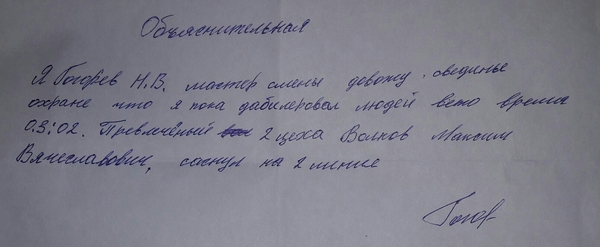 Объяснительная
Я Гогорев Н.В. мастер смены довожу свединье
охране что я пока дабилеровал людей вето время
03:02. Превлечёный 2 цеха Волков Максим
Вячеславович, соснул на 2 линие